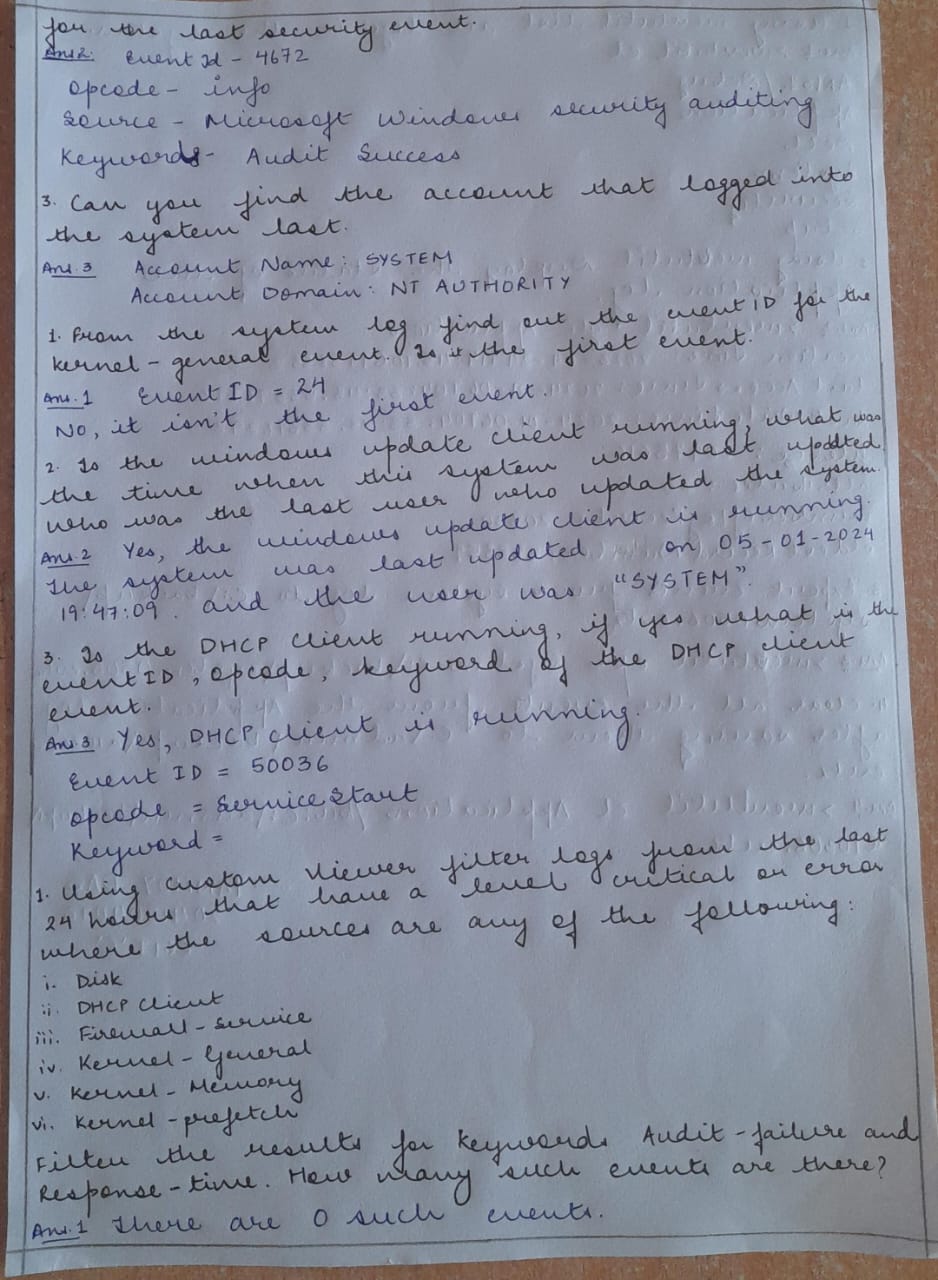 for the last security event.
Ans 2. Event Id - 4672
opcode - info
Source - Microsoft Windows security auditing
Keywords - Audit Success
3. Can you find the account that logged into
the system last.
Ans. 3 Account Name: SYSTEM
Account Domain: NT AUTHORITY
1. From the system log find out the event ID for the
kernel - general event. Is it the first event.
Ans. 1 Event ID = 24
No, it isn't the first event.
2. Is the windows update client running, what was
the time when this system was last updated
who was the last user who updated the system.
Ans. 2 Yes, the windows update client is running.
The system was last updated on 05-01-2024
19:47:09 and the user was "SYSTEM".
3. Is the DHCP client running, if yes what is the
event ID, opcode, keyword of the DHCP client
event.
Ans 3 Yes, DHCP client is running.
Event ID = 50036
opcode = Service Start
Keyword =
1. Using custom viewer filter logs from the last
24 hours that have a level critical or error
where the sources are any of the following:
i. Disk
ii. DHCP client
iii. Firewall - service
iv. Kernel - General
v. Kernel - Memory
vi. Kernel - prefetch
Filter the results for keywords Audit - failure and
Response - time. How many such events are there?
Ans. 1 There are 0 such events.